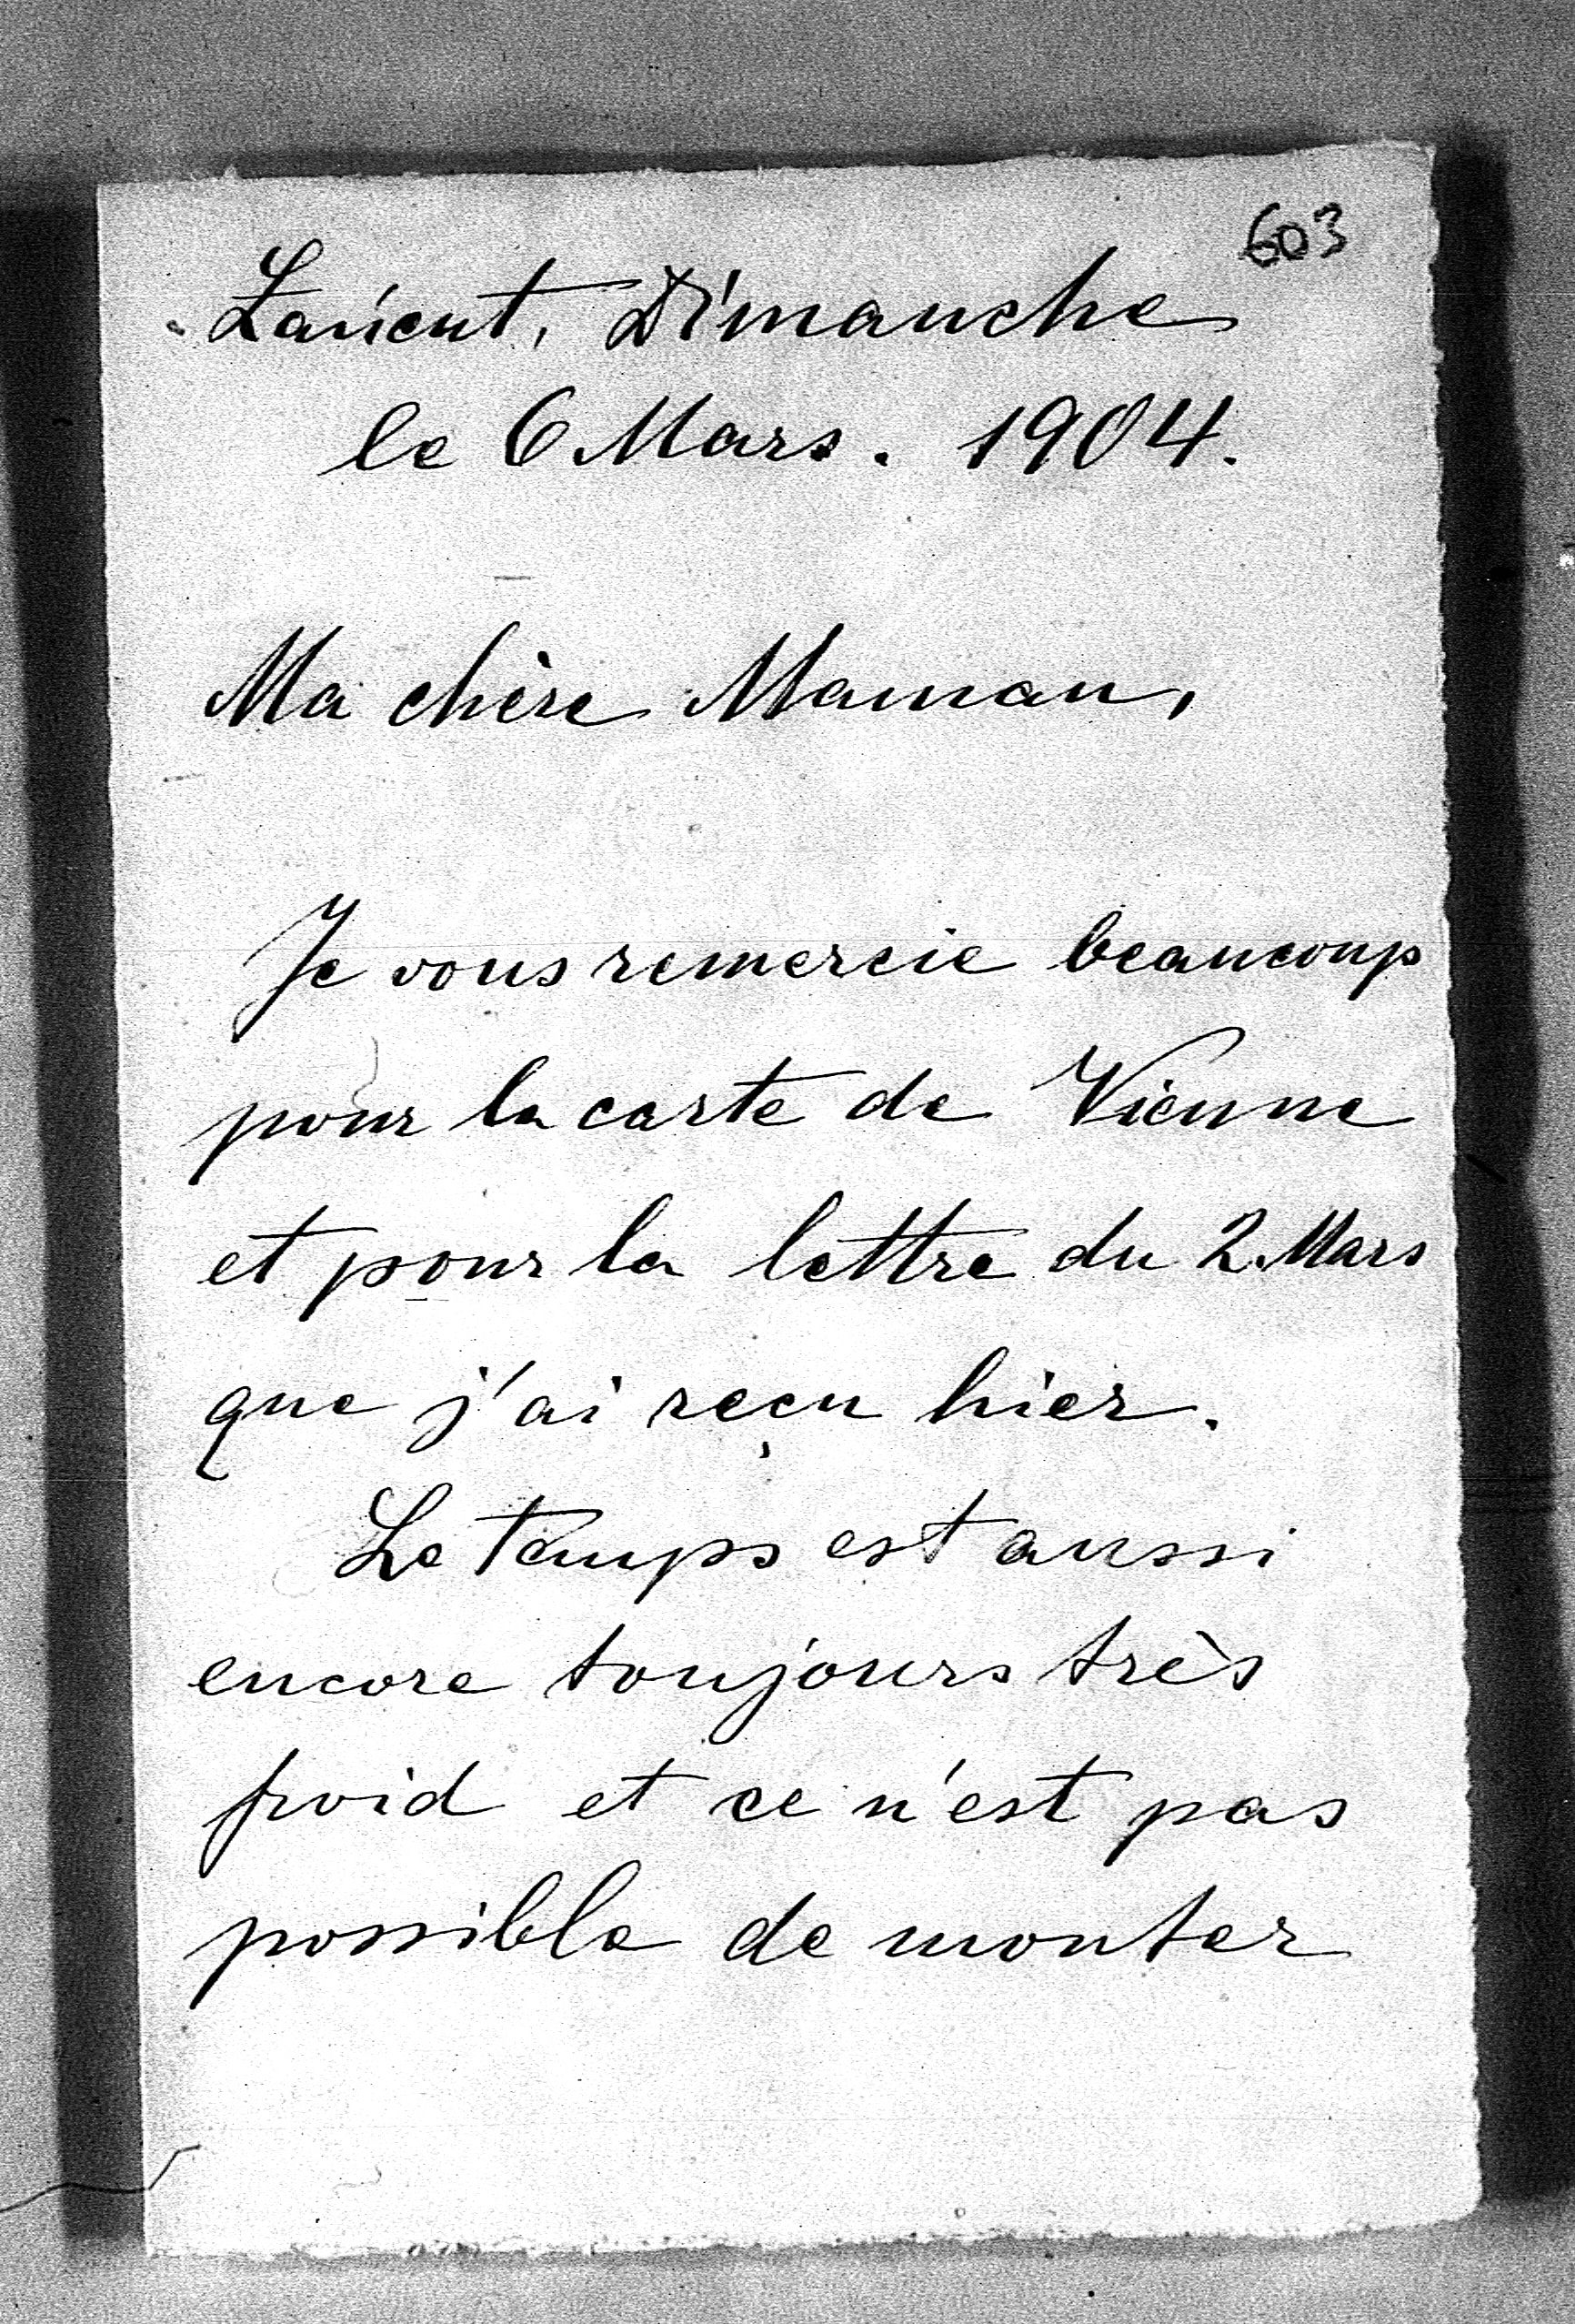 603
Larient, Dimanche
le 6 Mars. 1904.
Ma chère Maman,
Je vous remercie beaucoup
pour la carte de Vienne
et pour la lettre du 2. Mars
que j'ai reçu hier.
Le temps est aussi
encore toujours très
froid et ce n'est pas
possible de monter